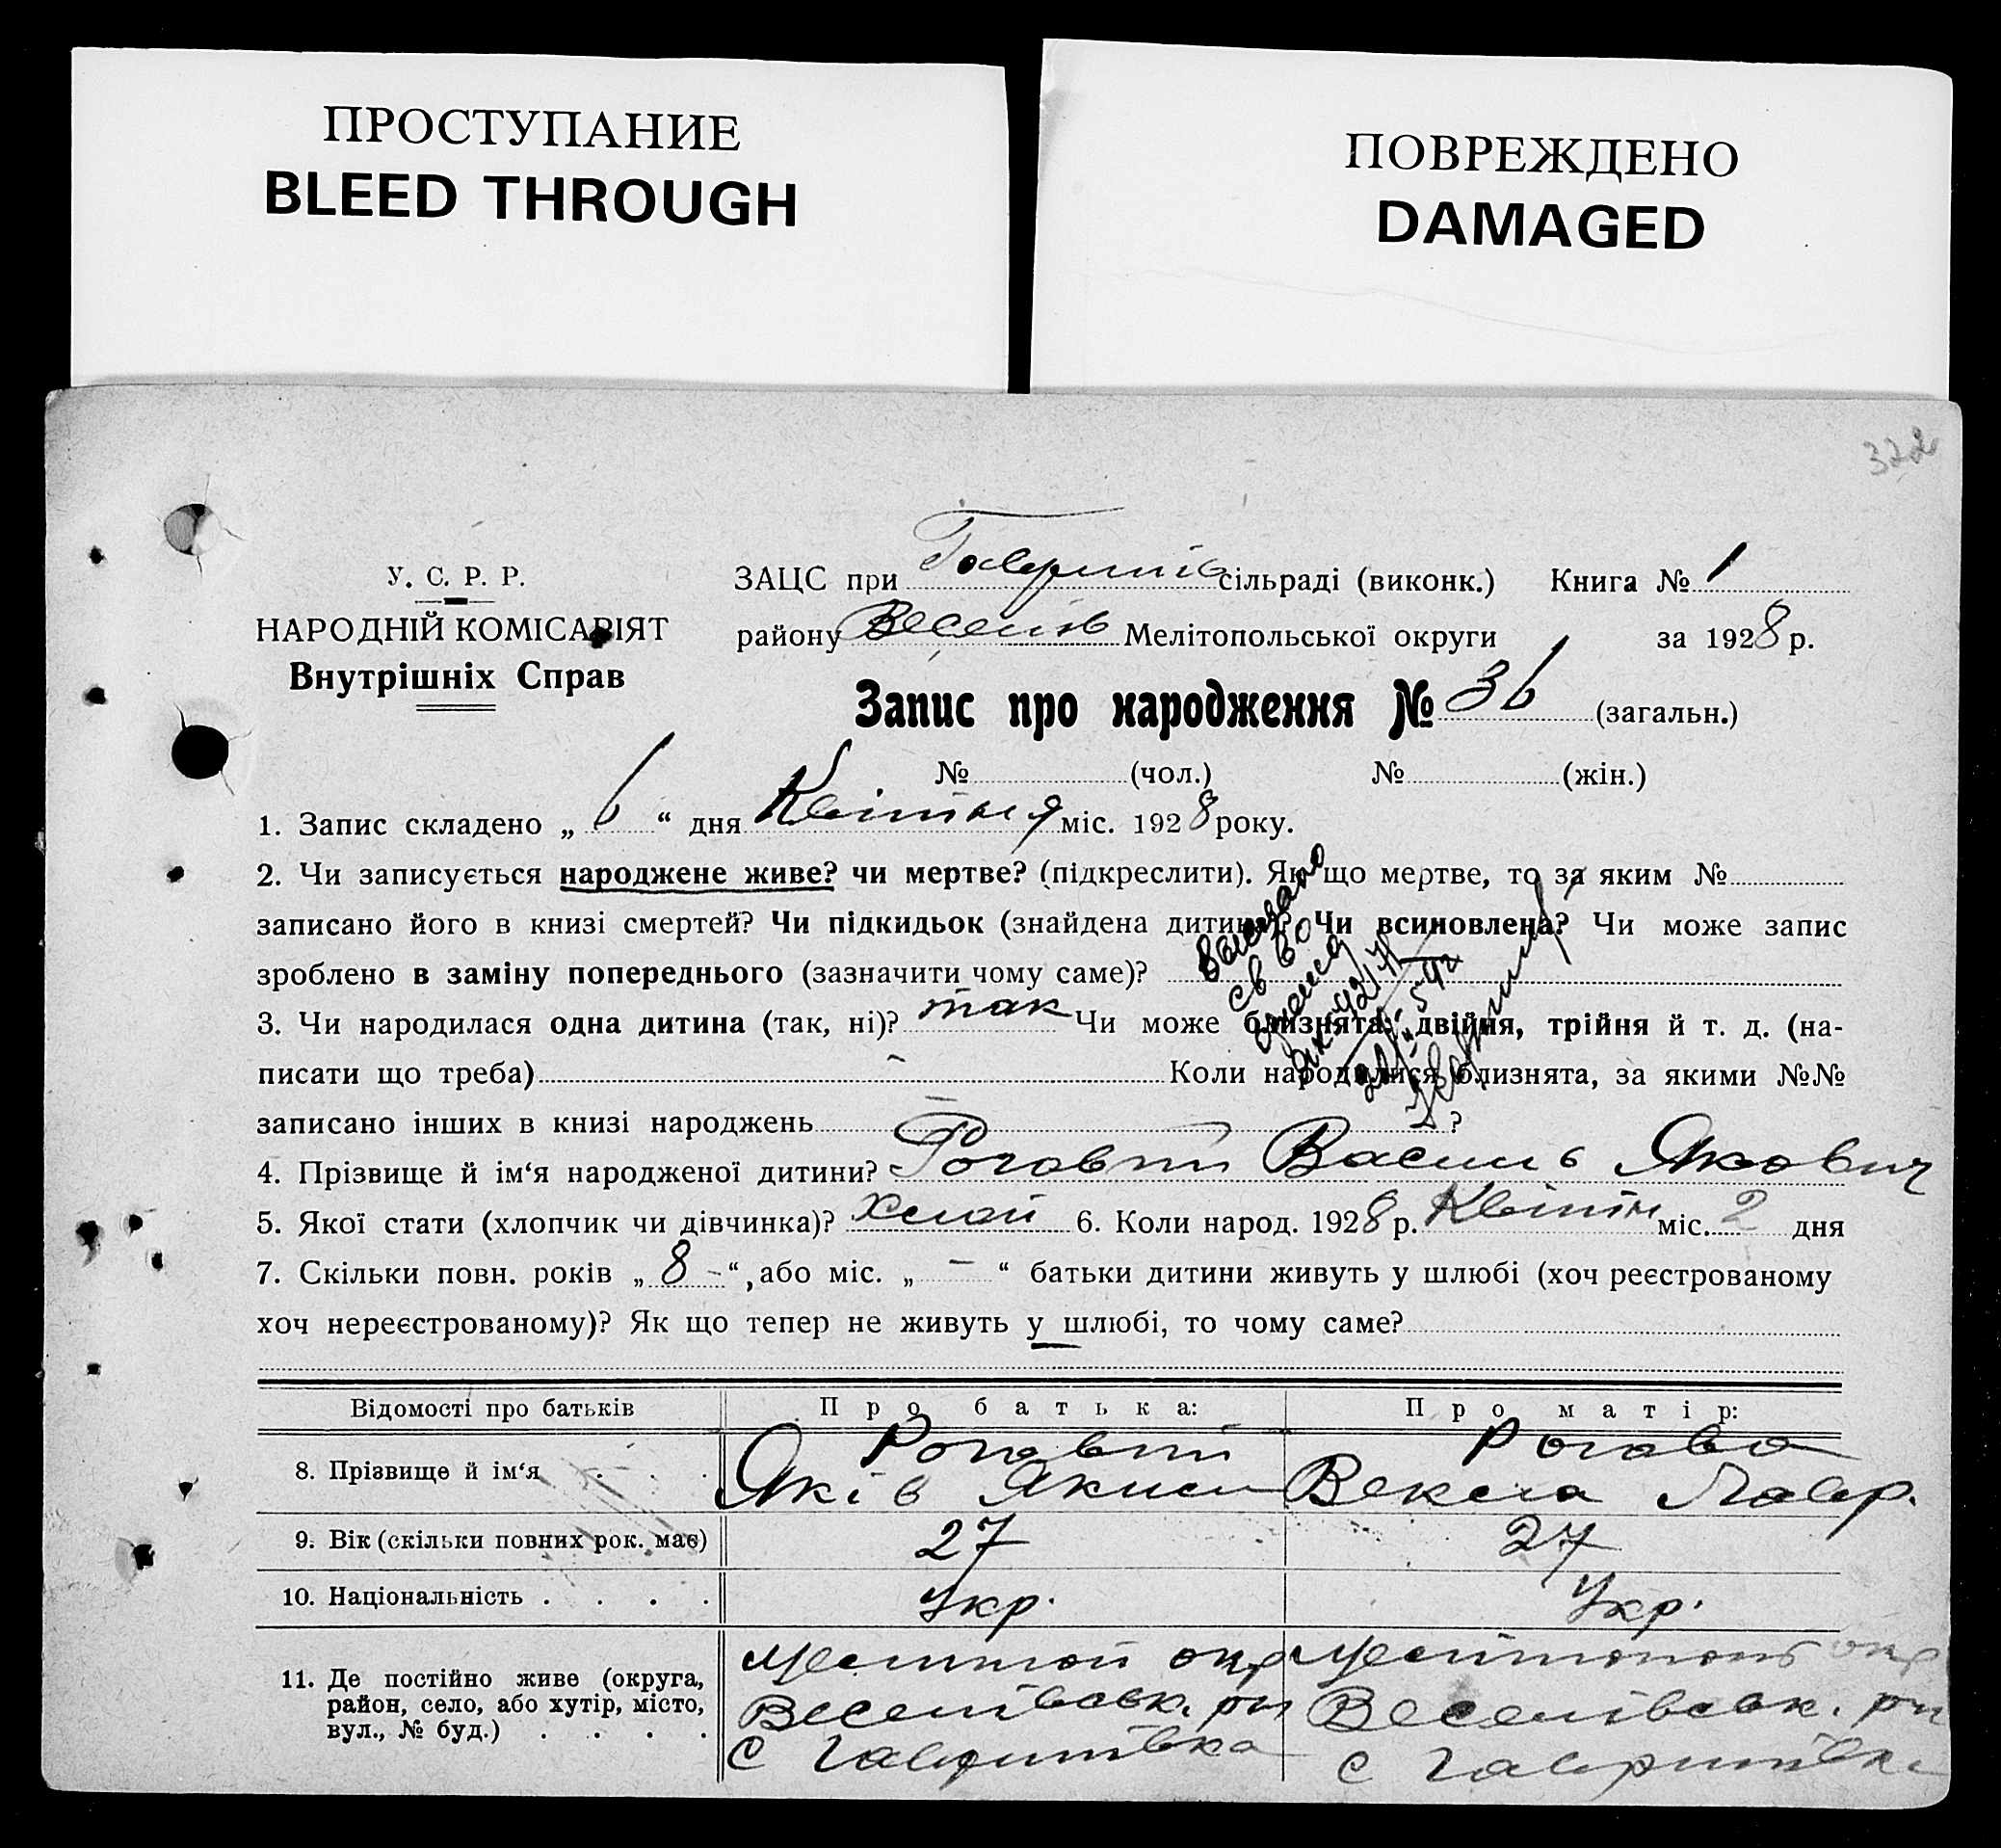 ПРОСТУПАНИЕ
BLEED THROUGH
ПОВРЕЖДЕНО
DAMAGED
322
У. С. Р. Р.
НАРОДНІЙ КОМІСАРІЯТ
Внутрішніх Справ
ЗАЦС при Гаврилів сільраді (виконк.) Книга № 1
району Веселів Мелітопольської округи за 1928 р.
Запис про народження № 36 (загальн.)
№ (чол.) № (жін.)
1. Запис складено „ 6 “ дня Квітня міс. 1928 року.
2. Чи записується народжене живе? чи мертве? (підкреслити). Як що мертве, то за яким №
записано його в книзі смертей? Чи підкидьок (знайдена дитина)? Чи всиновлена? Чи може запис
зроблено в заміну попереднього (зазначити чому саме)?
3. Чи народилася одна дитина (так, ні)? так Чи може близнята, двійня, трійня й т. д. (на-
писати що треба) - Коли народилися близнята, за якими №№
записано інших в книзі народжень - ?
4. Прізвище й ім‘я народженої дитини? Роговий Василь Якович
5. Якої стати (хлопчик чи дівчинка)? Хлоп 6. Коли народ. 1928 р. Квітн міс. 2 дня
7. Скільки повн. років „ 8 - “, або міс. „ - “ батьки дитини живуть у шлюбі (хоч реєстрованому
хоч нереєстрованому)? Як що тепер не живуть у шлюбі, то чому саме?
Відомості про батьків Про батька: Про матір:
8. Прізвище й ім‘я . . . Роговий Рогова
Яків Яким Векла Лавр.
9. Вік (скільки повних рок. має) 27 27
10. Національність . . . . Укр. Укр.
11. Де постійно живе (округа, район, село, або хутір, місто, вул., № буд.) . . . .
Мелитоп окр Мелитополь окр
Веселівськ. рн Веселівськ. рн
с Гаврилівка с Гаврилівка